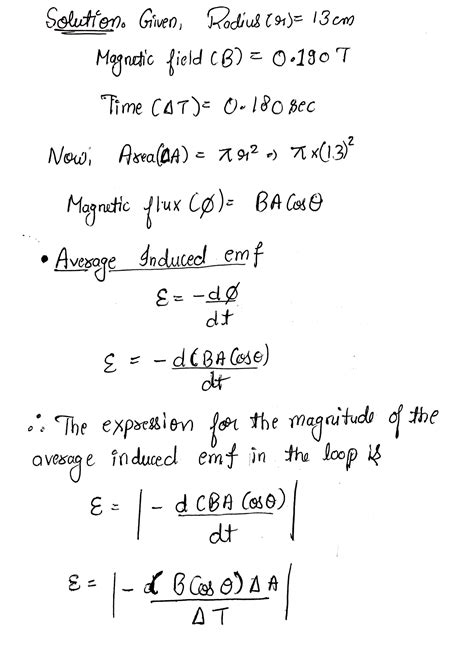 Solution. Given, Radius (r) = 13 cm
Magnetic field (B) = 0.190 T
Time (ΔT) = 0.180 sec
Now, Area (ΔA) = πr² => π×(13)²
Magnetic flux (Ø) = BA Cosθ
• Average Induced emf
ε = -dØ/dt
ε = - d(BA Cosθ)/dt
∴ The expression for the magnitude of the
average induced emf in the loop is
ε = | - d(BA Cosθ)/dt |
ε = | - (B Cosθ) ΔA/ΔT |